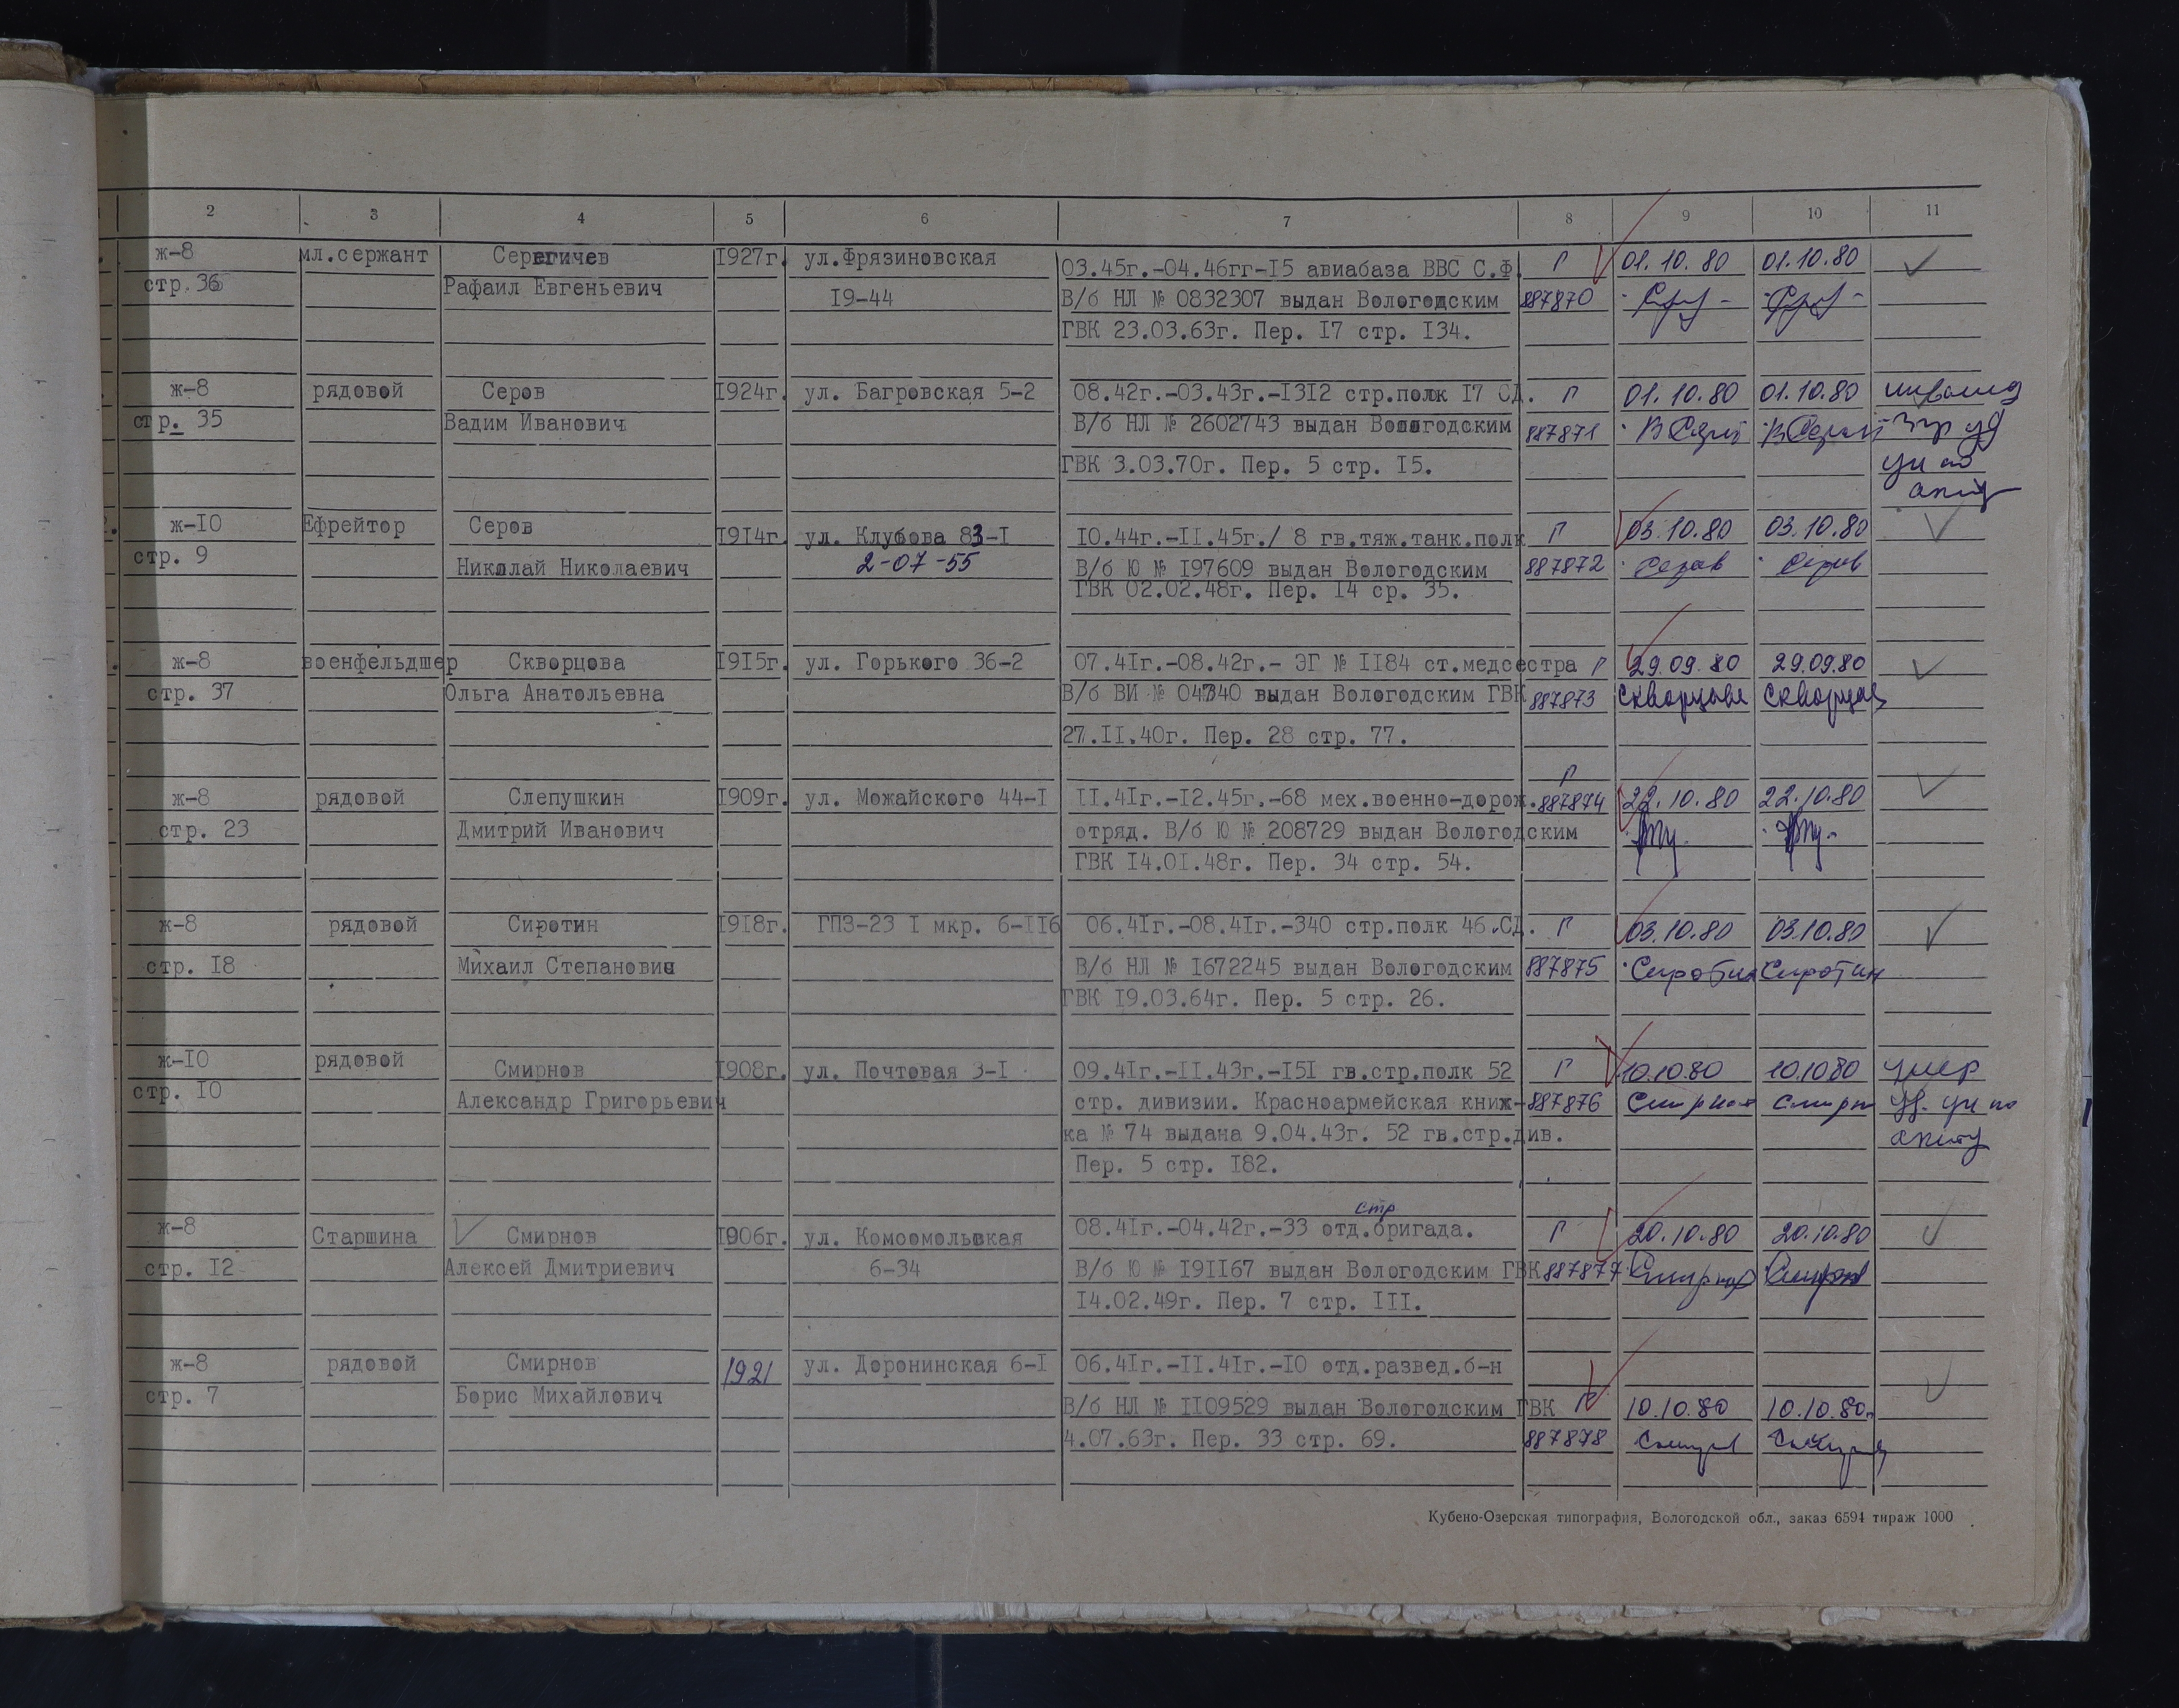 2 3 4 5 6 7 8 9 10 11
ж-8 мл.сержант Серегичев 1927г. ул.Фрязиновская 03.45г.-04.46гг-15 авиабаза ВВС С.Ф. Г 01.10.80 01.10.80
стр.36 Рафаил Евгеньевич 19-44 В/б НЛ № 0832307 выдан Вологодским 887870
ГВК 23.03.63г. Пер. 17 стр. 134.
ж-8 рядовой Серов 1924г. ул. Багровская 5-2 08.42г.-03.43г.-1312 стр.полк 17 СД. Г 01.10.80 01.10.80 инвалид
стр. 35 Вадим Иванович В/б НЛ № 2602743 выдан Вологодским 887871
ГВК 3.03.70г. Пер. 5 стр. 15.
ж-10 Ефрейтор Серов 1914г. ул. Клубова 83-1 10.44г.-11.45г./ 8 гв.тяж.танк.полк Г 03.10.80 03.10.80
стр. 9 Николай Николаевич 2-07-55 В/б Ю № 197609 выдан Вологодским 887872 Серов Серов
ГВК 02.02.48г. Пер. 14 ср. 35.
ж-8 военфельдшер Скворцова 1915г. ул. Горького 36-2 07.41г.-08.42г.- ЭГ № 1184 ст.медсестра Г 29.09.80 29.09.80
стр. 37 Ольга Анатольевна В/б ВИ № 04340 выдан Вологодским ГВК 887873 Скворцова Скворцова
27.11.40г. Пер. 28 стр. 77.
Г
ж-8 рядовой Слепушкин 1909г. ул. Можайского 44-1 11.41г.-12.45г.-68 мех.военно-дорож. 887874 22.10.80 22.10.80
стр. 23 Дмитрий Иванович отряд. В/б Ю № 208729 выдан Вологодским
ГВК 14.01.48г. Пер. 34 стр. 54.
ж-8 рядовой Сиротин 1918г. ГПЗ-23 1 мкр. 6-116 06.41г.-08.41г.-340 стр.полк 46.СД. Г 03.10.80 03.10.80
стр. 18 Михаил Степанович В/б НЛ № 1672245 выдан Вологодским 887875 Сиротин Сиротин
ГВК 19.03.64г. Пер. 5 стр. 26.
ж-10 рядовой Смирнов 1908г. ул. Почтовая 3-1 09.41г.-11.43г.-151 гв.стр.полк 52 Г 10.10.80 10.10.80 умер
стр. 10 Александр Григорьевич стр. дивизии. Красноармейская книж- 887876
ка № 74 выдана 9.04.43г. 52 гв.стр.див.
Пер. 5 стр. 182.
стр
ж-8 Старшина Смирнов 1906г. ул. Комсомольская 08.41г.-04.42г.-33 отд.бригада. Г 20.10.80 20.10.80
стр. 12 Алексей Дмитриевич 6-34 В/б Ю № 191167 выдан Вологодским ГВК 887877
14.02.49г. Пер. 7 стр. 111.
ж-8 рядовой Смирнов 1921 ул. Доронинская 6-1 06.41г.-11.41г.-10 отд.развед.б-н
стр. 7 Борис Михайлович В/б НЛ № 1109529 выдан Вологодским ГВК Г 10.10.80 10.10.80
4.07.63г. Пер. 33 стр. 69. 887878
Кубено-Озерская типография, Вологодской обл., заказ 6594 тираж 1000